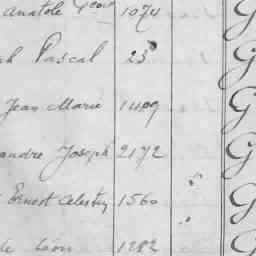 Anatole Geo 1074 G
Pascal 23 G
Jean Marie 1409 G
andre Joseph 2172 G
Ernest Celestin 1560 G
de Léon 1282 G